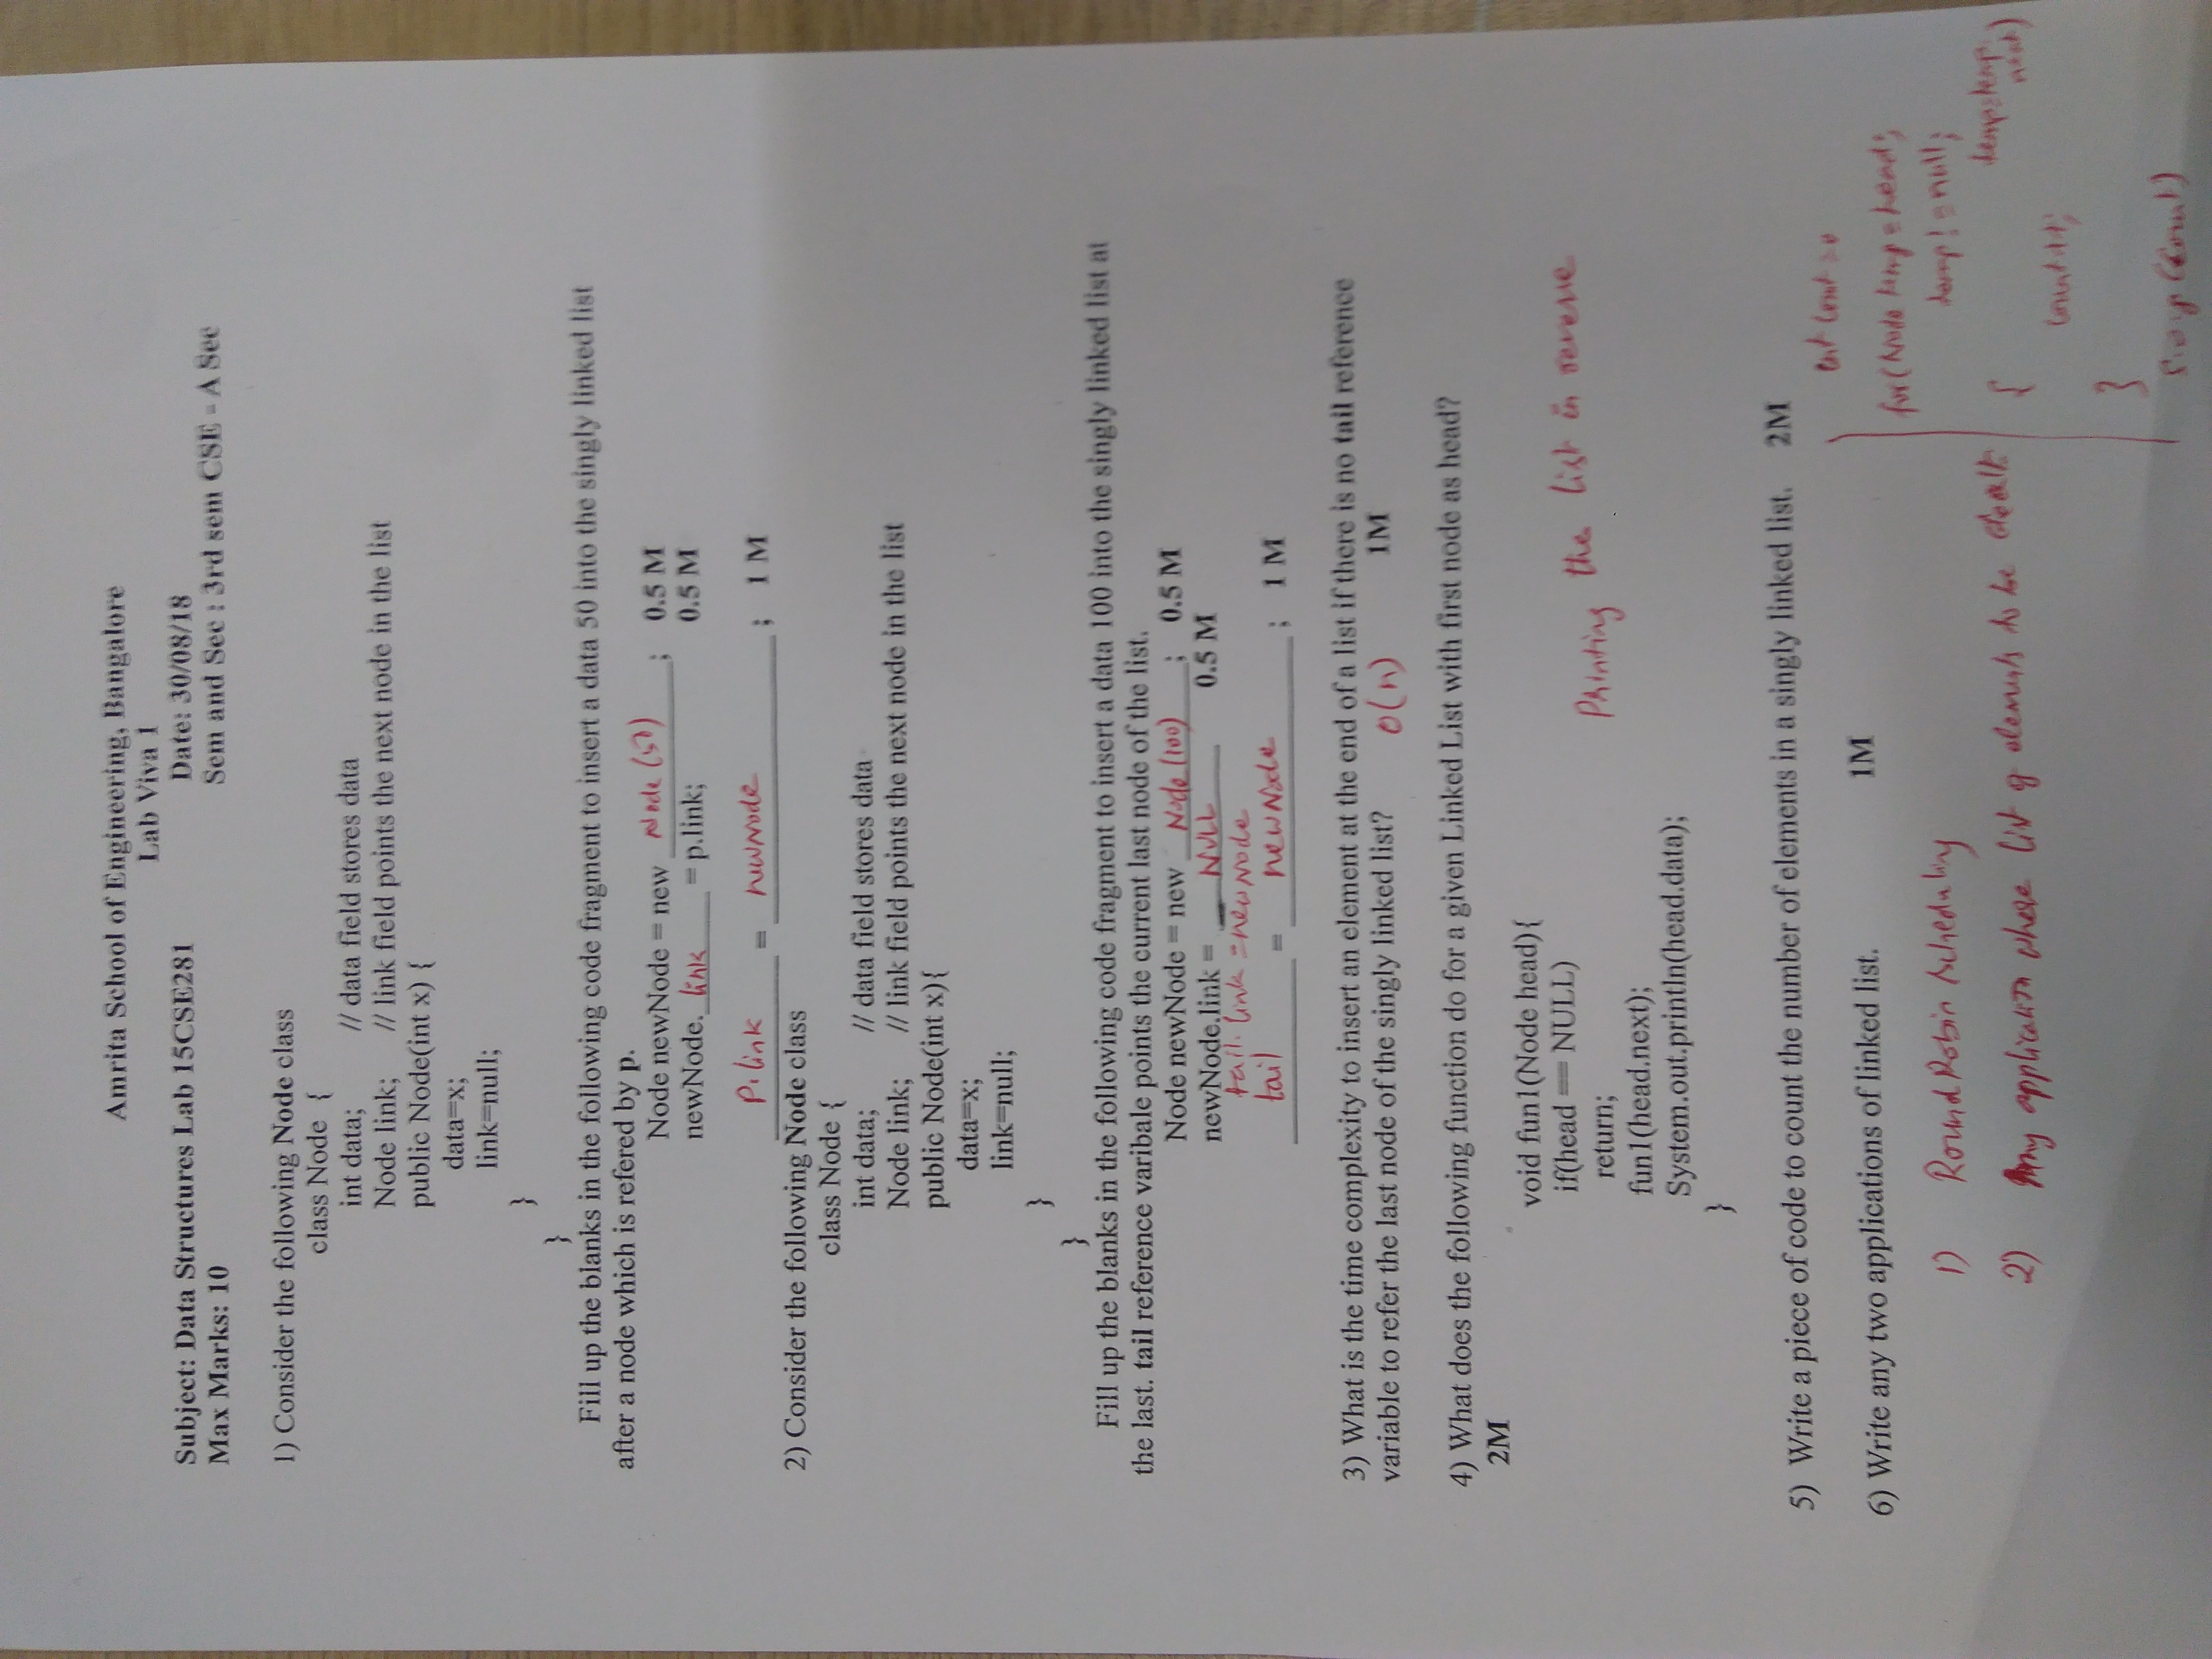 Amrita School of Engineering, Bangalore
Lab Viva 1
Subject: Data Structures Lab 15CSE281 Date: 30/08/18
Max Marks: 10 Sem and Sec : 3rd sem CSE - A Sec
1) Consider the following Node class
class Node {
int data; // data field stores data
Node link; // link field points the next node in the list
public Node(int x) {
data=x;
link=null;
}
}
Fill up the blanks in the following code fragment to insert a data 50 into the singly linked list
after a node which is refered by p.
Node newNode = new Node (50) ; 0.5 M
newNode. link = p.link; 0.5 M
P. link = newNode ; 1 M
2) Consider the following Node class
class Node {
int data; // data field stores data
Node link; // link field points the next node in the list
public Node(int x){
data=x;
link=null;
}
}
Fill up the blanks in the following code fragment to insert a data 100 into the singly linked list at
the last. tail reference varibale points the current last node of the list.
Node newNode = new Node (100) ; 0.5 M
newNode.link = NULL 0.5 M
tail. link = newNode
tail = newNode ; 1 M
3) What is the time complexity to insert an element at the end of a list if there is no tail reference
variable to refer the last node of the singly linked list? O(n) 1M
4) What does the following function do for a given Linked List with first node as head?
2M
void fun1(Node head){
if(head == NULL)
return;
fun1(head.next);
System.out.println(head.data);
}
Printing the list in reverse
5) Write a piece of code to count the number of elements in a singly linked list. 2M
int count = 0
for (Node temp = head;
temp! = null;
temp=temp.
next)
{
count++;
}
S.o.p (count)
6) Write any two applications of linked list. 1M
1) Round Robin Scheduling
2) Any application where list of elements to be dealt